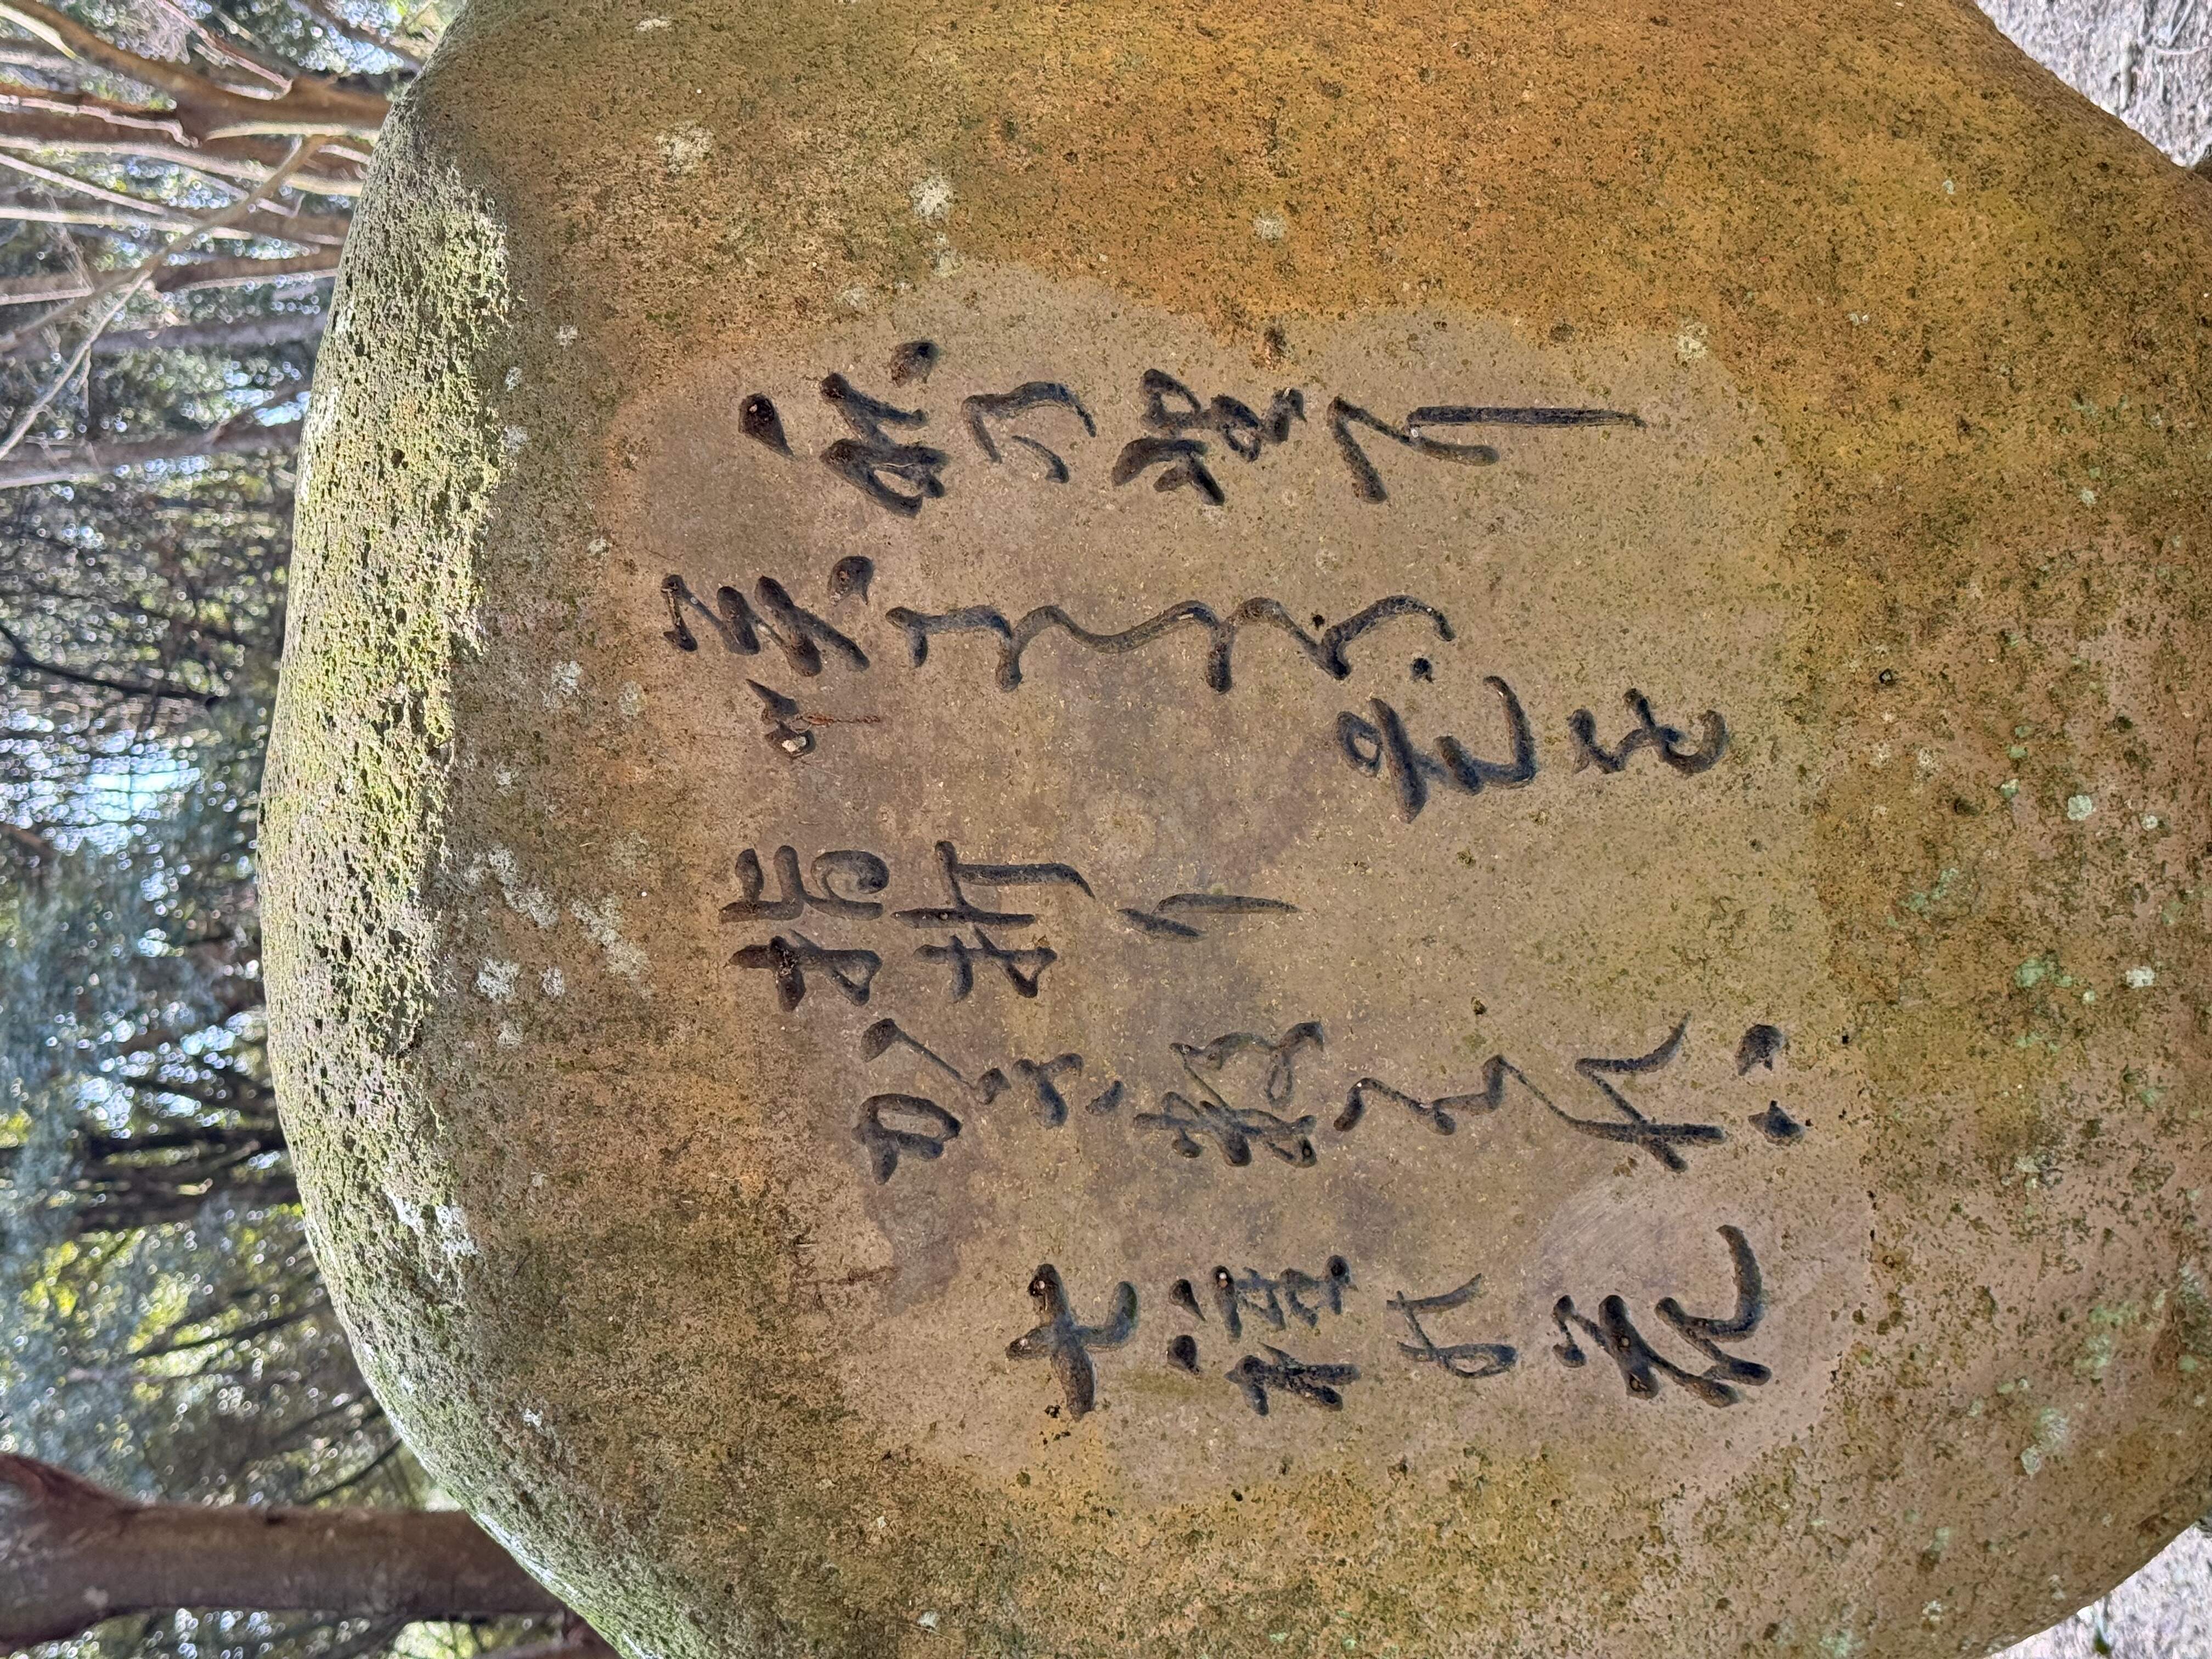 秋の野に
咲きたる
花を
指折り
かき数ふれば
七種の花